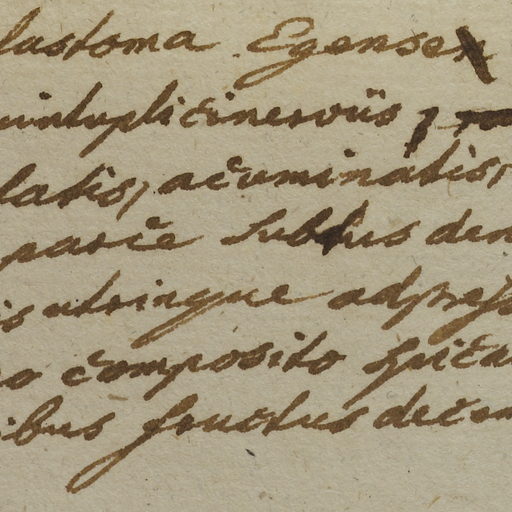 lastoma Egense
uintuplicinerviis,
latis, acuminatis,
parce subtus den
is utrinque adpres
o composito spica
ibus fructus decem